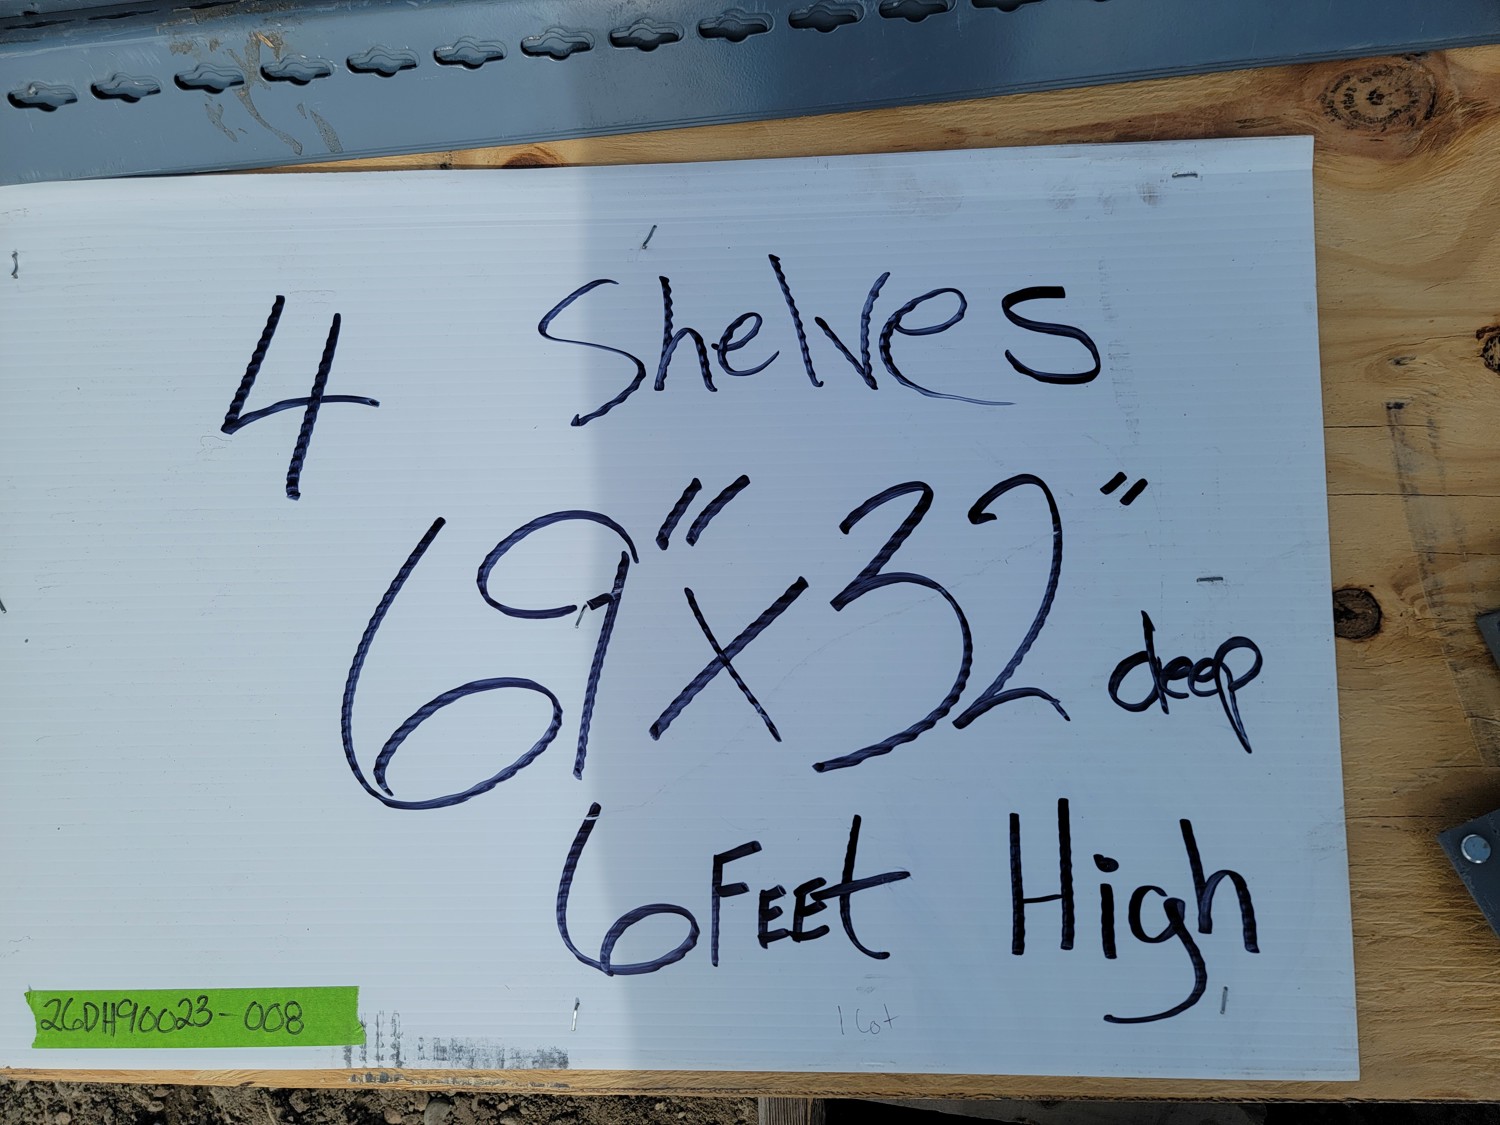 4 Shelves
69" x 32" deep
6 FEEt High
26DH90023-008
1 Lot